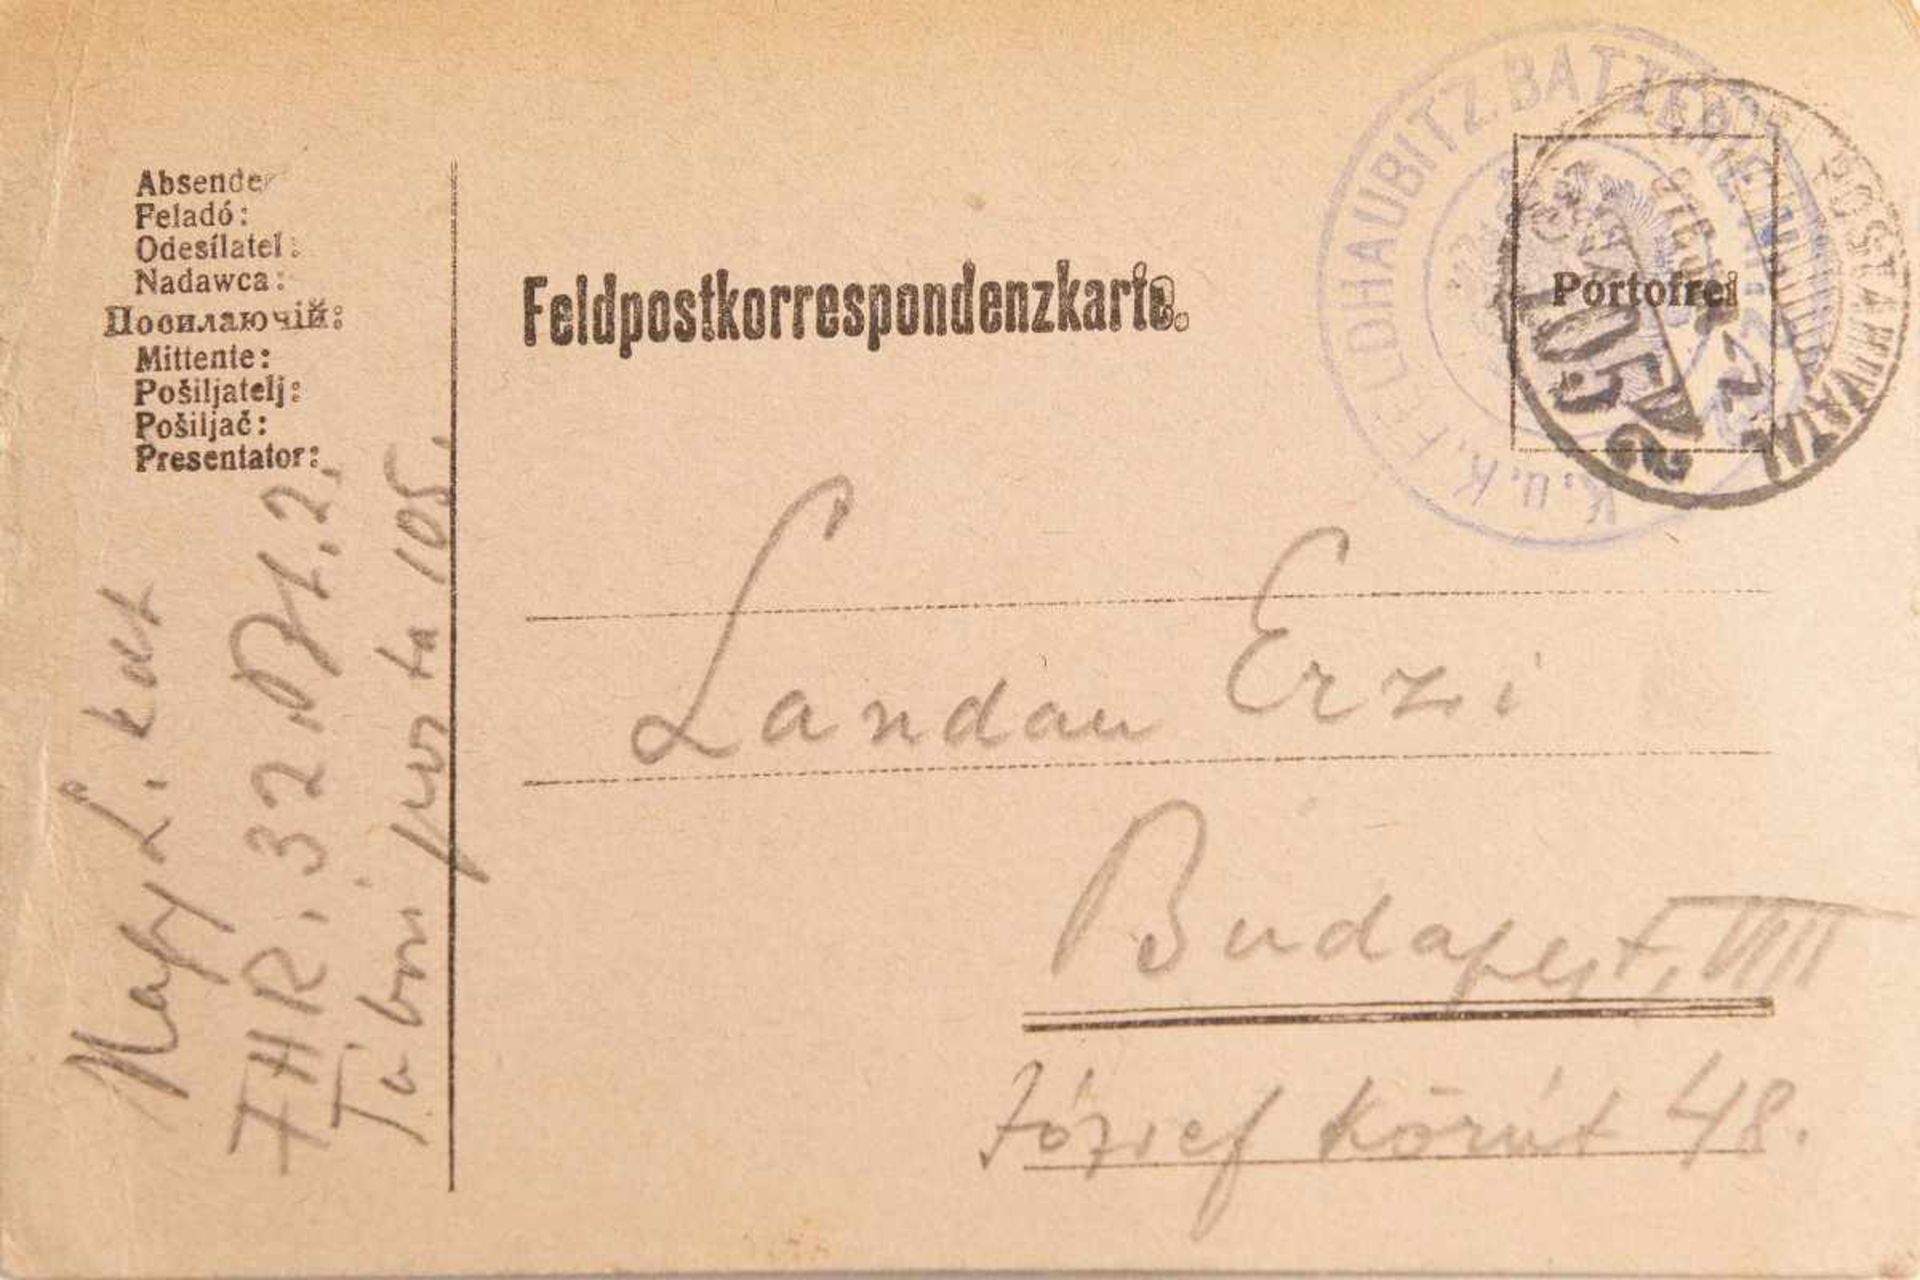 Absender
Feladó:
Odesílatel:
Nadawca:
Посилаючій:
Mittente:
Pošiljatelj:
Pošiljač:
Presentator:
Nagy L. kdt
FHR. 32. 2.
Tábori posta 105.
Feldpostkorrespondenzkarte.
K.u.K. FELDHAUBITZ BATTERIE
POSTAHIVATAL
105
Portofrei
Landau Erzi
Budapest, VIII
József körút 48.